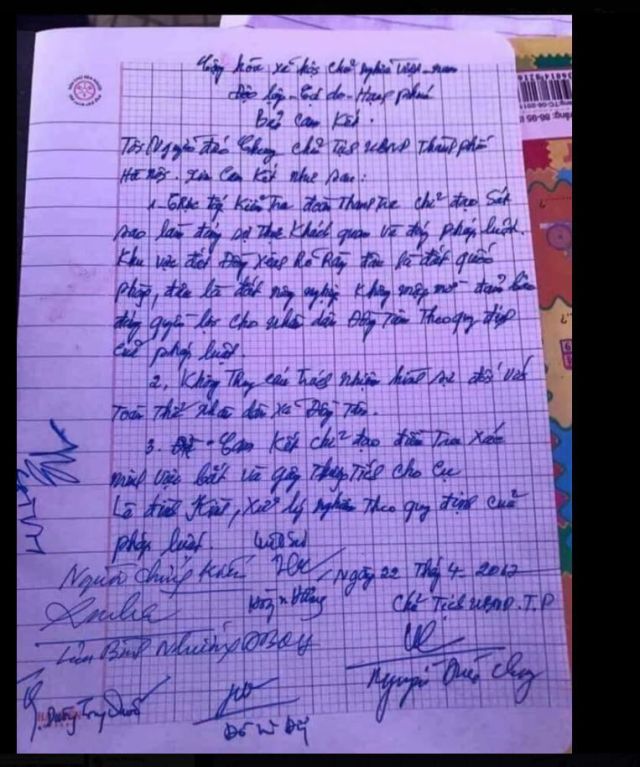 Cộng hòa xã hội chủ nghĩa việt nam
Độc lập - Tự do - Hạnh phúc
Bản Cam Kết.
Tôi Nguyễn Đức Chung chủ Tịch UBND Thành phố
Hà nội. xin Cam Kết như sau:
1. Trực tiếp Kiểm Tra đoàn Thanh Tra chỉ đạo Sát
sao làm đúng sự thật Khách quan và đúng pháp luật.
Khu vực đất Đồng Sênh Rõ Ràng đâu là đất quốc
phòng, đâu là đất nông nghiệp Không mập mờ đảm bảo
đúng quyền lợi cho nhân dân Đồng Tâm Theo quy định
của pháp luật.
2. Không Truy cứu Trách nhiệm hình sự đối với
Toàn Thể nhân dân xã Đồng Tâm.
3. Cam Kết chỉ đạo điều Tra xác
minh việc bắt và gây Thương Tích cho cụ
Lê đình Kình, Xử lý nghiêm Theo quy định của
pháp luật.
Người chứng Kiến Ngày 22 Thg 4. 2017
Chủ Tịch UBND.T.P
Lưu Bình Nhưỡng ĐBQH
Nguyễn Đức Chung
Dương Trung Quốc